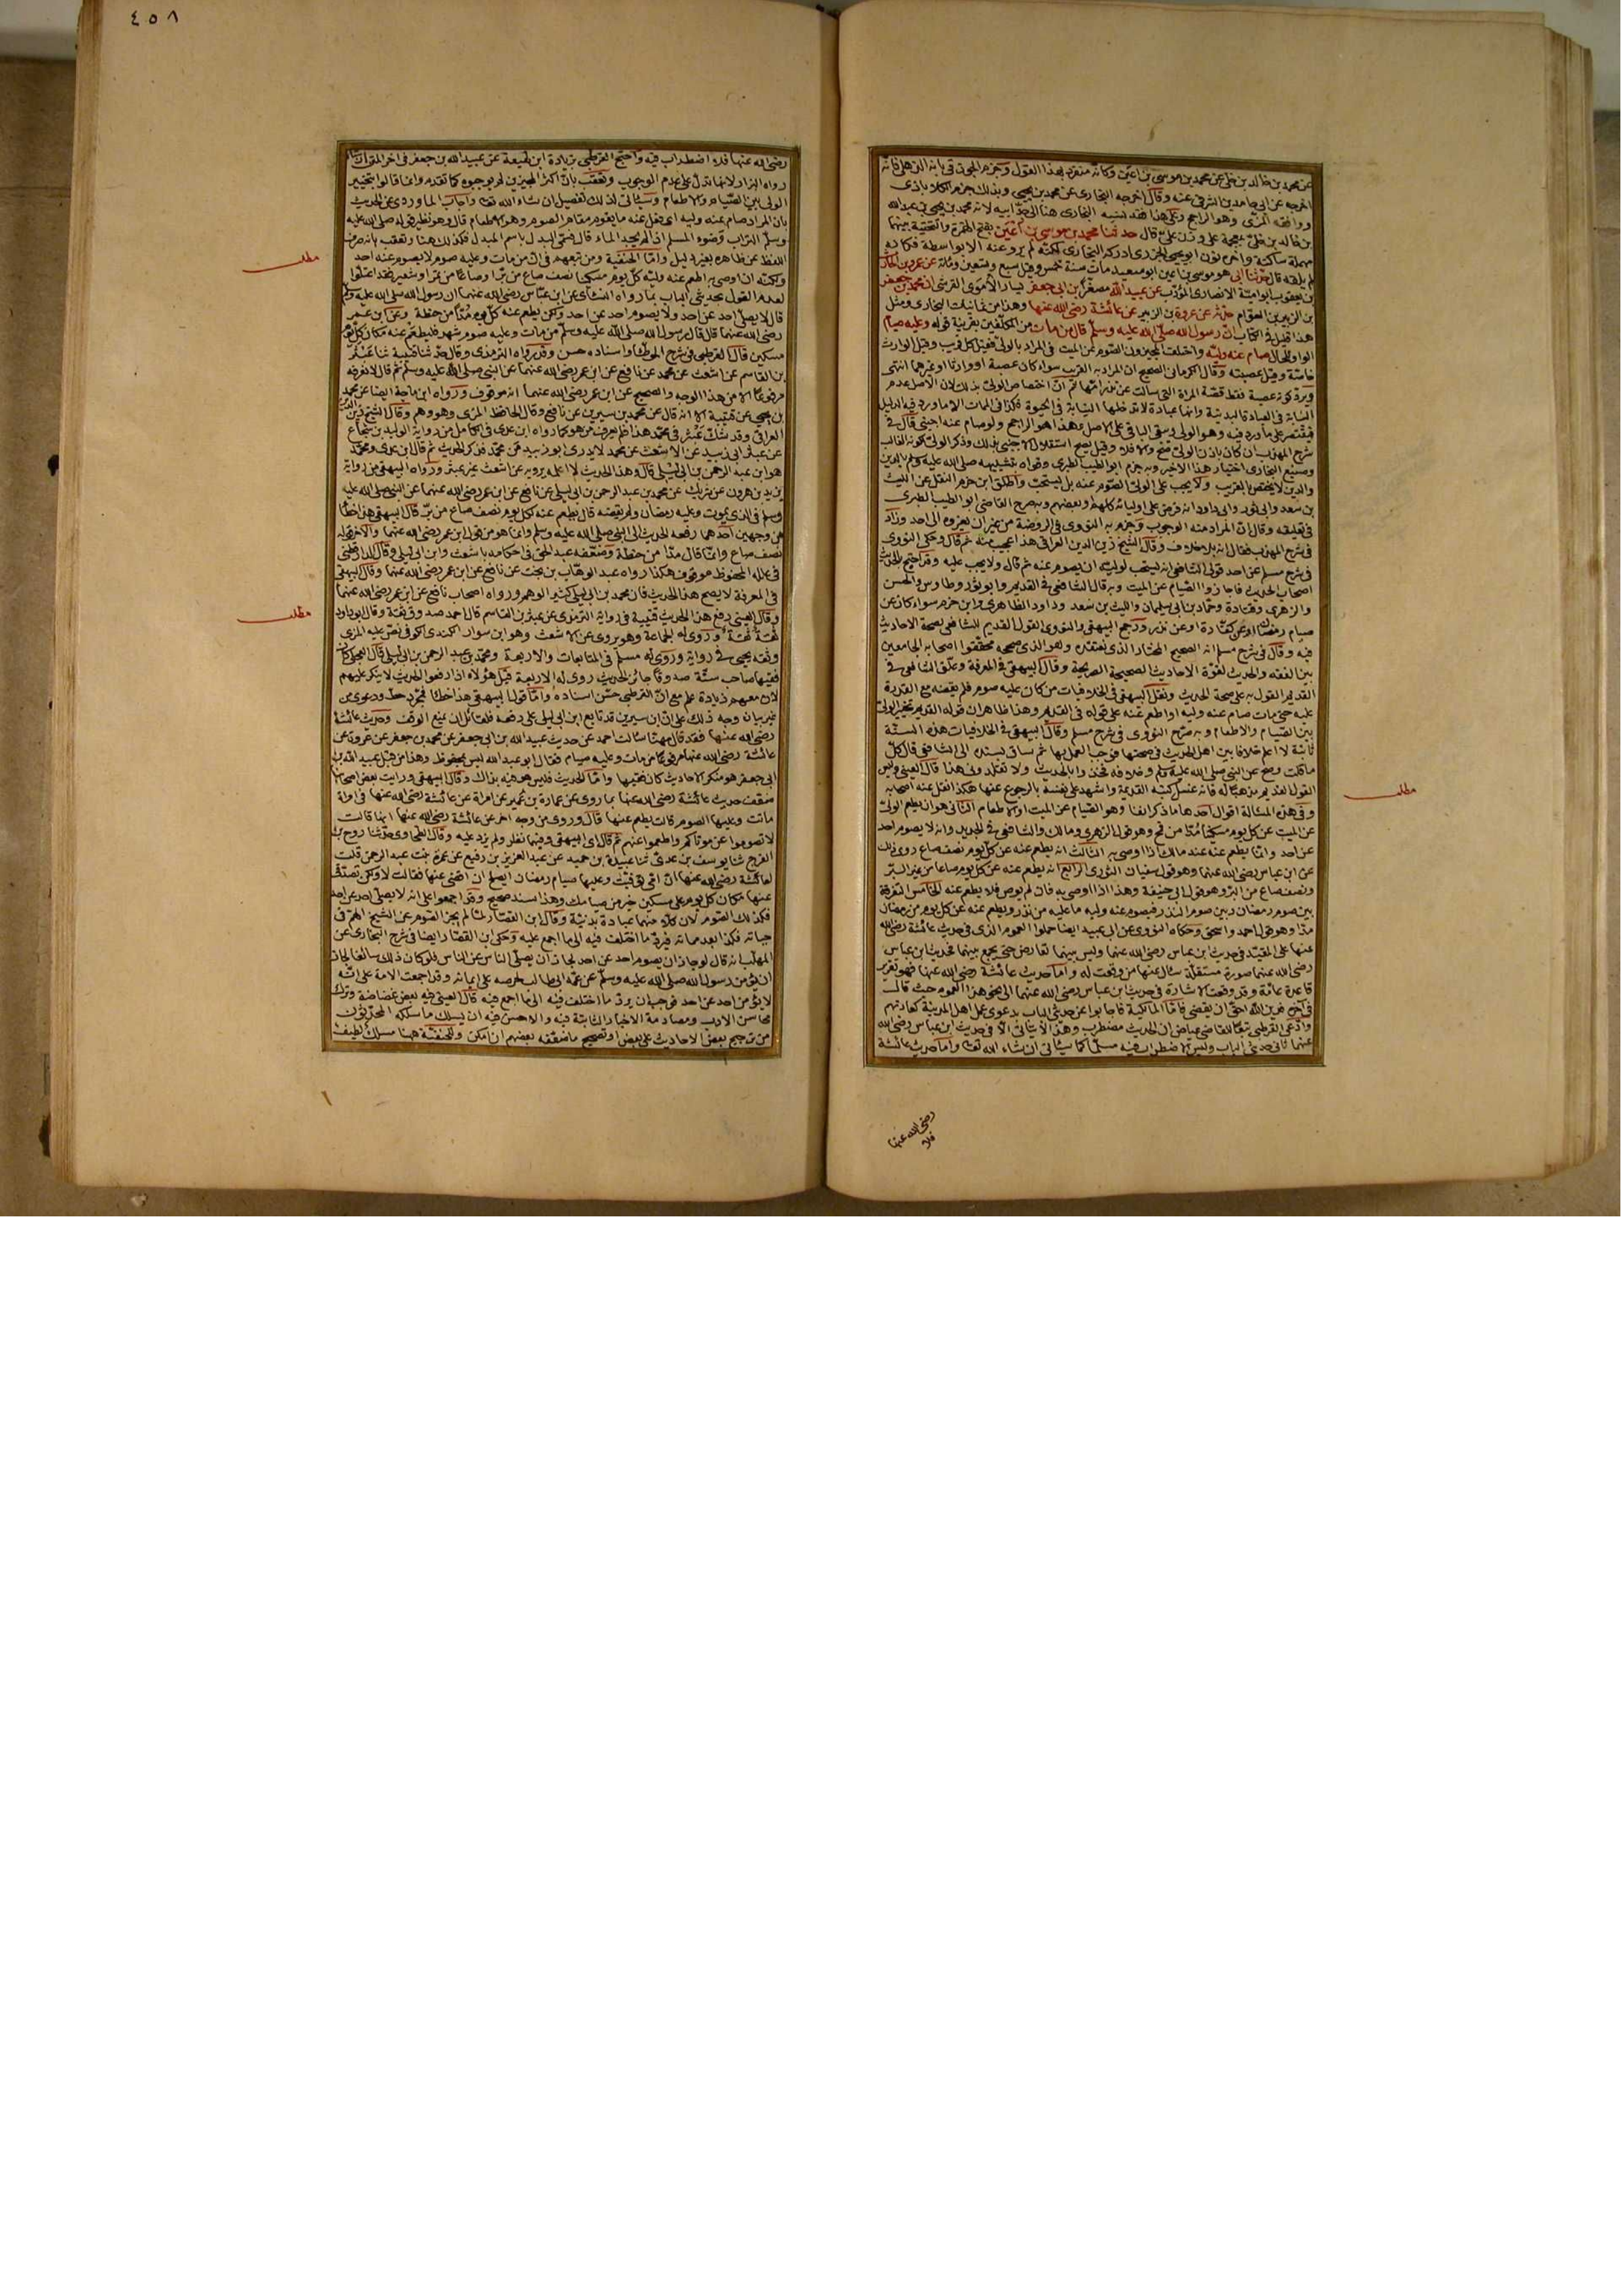 ٤٥٨
عن محمد بن خالد بن خلي عن محمد بن موسى بن اعين وكانه منفرد بهذا القول وجزم الجوزقي بانه الذهلي فانه
اخرجه عن ابي حامد بن الشرقي عنه وقال اخرجه البخاري عن محمد بن يحيى وبذلك جزم الكلاباذي
ووافقه المزي وهو الراجح وعلى هذا فقد نسبه البخاري هنا الى جد ابيه لانه محمد بن يحيى بن عبد الله
بن خالد بن خلي بمعجمة على وزن علي قال حدثنا محمد بن موسى بن اعين بفتح الهمزة والتحتية بينهما
مهملة ساكنة واخره نون ابو يحيى الجزري ادركه البخاري لكنه لم يرو عنه الا بواسطة فكانه
لم يلقه قال حدثنا ابي هو موسى بن اعين ابو سعيد مات سنة خمس وقيل سبع وسبعين ومائة عن عمرو بن الحارث
بن يعقوب ابو امية الانصاري المؤدب عن عبيد الله مصغرا بن ابي جعفر يسار الاموي القرشي ان محمد بن جعفر
بن الزبير بن العوام حدثه عن عروة بن الزبير عن عائشة رضي الله عنها وهذا من ثمانيات البخاري ومثل
هذا قليل في الكتاب ان رسول الله صلى الله عليه وسلم قال من مات من المكلفين بقرينة قوله وعليه صيام
الواو للحال صام عنه وليه واختلف المجيزون الصوم عن الميت في المراد بالولي فقيل كل قريب وقيل الوارث
خاصة وقيل عصبته وقال الكرماني الصحيح ان المراد به القريب سواء كان عصبة او وارثا او غيرهما انتهى
ويرد كونه عصبة فقط قصة المراة التي سالت عن نذر امها ثم ان اختصاص الولي بذلك لان الاصل عدم
النيابة في العبادة البدنية ولانها عبادة لا تدخلها النيابة في الحيوة فكذا في الممات الا ما ورد فيه الدليل
فيقتصر على ما ورد فيه وهو الولي وبقي الباقي على الاصل وهذا هو الراجح ولو صام عنه اجنبي قال في
شرح المهذب ان كان باذن الولي صح والا فلا وقيل يصح استقلال الاجنبي بذلك وذكر الولي لكونه الغالب
وصنيع البخاري اختيار هذا الاخير وبه جزم ابو الطيب الطبري وقواه بتشبيهه صلى الله عليه وسلم بالدين
والدين لا يختص بالقريب ولا يجب على الولي الصوم عنه بل يستحب واطلق ابن حزم النقل عن الليث
بن سعد وابي ثور وداود انه فرض على اوليائه كلهم او بعضهم وبه صرح القاضي ابو الطيب الطبري
في تعليقه وقال ان المراد منه الوجوب وجزم به النووي في الروضة من غير ان يعزوه الى احد وزاد
في شرح المهذب فقال انه بلا خلاف وقال الشيخ زين الدين العراقي هذا اعجب منه ثم قال وحكى النووي
في شرح مسلم عن احد قولي الشافعي انه يستحب لوليه ان يصوم عنه ثم قال ولا يجب عليه وقد احتج بالحديث
اصحاب الحديث فاجازوا الصيام عن الميت وبه قال الشافعي في القديم وابو ثور وطاوس والحسن
والزهري وقتادة وحماد بن ابي سليمان والليث بن سعد وداود الظاهري وابن حزم سواء كان عن
صيام رمضان او عن كفارة او عن نذر ورجح البيهقي والنووي القول القديم للشافعي لصحة الاحاديث
فيه وقال في شرح مسلم انه الصحيح المختار الذي نعتقده وهو الذي صححه محققوا اصحابه الجامعين
بين الفقه والحديث لقوة الاحاديث الصحيحة الصريحة وقال البيهقي في المعرفة وعلق الشافعي في
القديم القول به على صحة الحديث ونقل البيهقي في الخلافيات من كان عليه صوم فلم يقضه مع القدرة
عليه حتى مات صام عنه وليه او اطعم عنه على قوله في القديم وهذا ظاهر ان قوله القديم تخيير الولي
بين الصيام والاطعام وبه صرح النووي في شرح مسلم وقال البيهقي في الخلافيات هذه السنة
ثابتة لا اعلم خلافا بين اهل الحديث في صحتها فوجب العمل بها ثم ساق بسنده الى الشافعي قال كل
ما قلت وصح عن النبي صلى الله عليه وسلم وخلافه فخذوا بالحديث ولا تقلدوني هذا قال العيني وليس
القول القديم مذهبا له فانه غسل كتبه القديمة واشهد على نفسه بالرجوع عنها هكذا نقل عنه اصحابه
مطلب
وفي هذه المسالة اقوال احدها ما ذكر انفا وهو الصيام عن الميت او الاطعام الثاني هو ان يطعم الولي
عن الميت عن كل يوم مسكينا مدا من قمح وهو قول الزهري ومالك والشافعي في الجديد وانه لا يصوم احد
عن احد وانما يطعم عنه عند مالك اذا اوصى به الثالث انه يطعم عنه عن كل يوم نصف صاع روي ذلك
عن ابن عباس رضي الله عنهما وهو قول سفيان الثوري الرابع انه يطعم عنه عن كل يوم صاعا من غير البر
ونصف صاع من البر وهو قول ابي حنيفة وهذا اذا اوصى به فان لم يوص فلا يطعم عنه الخامس التفرقة
بين صوم رمضان وبين صوم النذر فيصوم عنه وليه ما عليه من نذر ويطعم عنه عن كل يوم من رمضان
مدا وهو قول احمد واسحق وحكاه النووي عن ابي عبيد ايضا حملوا العموم الذي في حديث عائشة رضي الله
عنها على المقيد في حديث ابن عباس رضي الله عنهما وليس بينهما تعارض حتى يجمع بينهما فحديث ابن عباس
رضي الله عنهما صورة مستقلة سال عنها من وقعت له واما حديث عائشة رضي الله عنها فهو تقرير
قاعدة عامة وقد وقعت الاشارة في حديث ابن عباس رضي الله عنهما الى نحو هذا العموم حيث قال
في اخره فدين الله احق ان يقضى فاما المالكية فاجابوا عن حديثي الباب بدعوى عمل اهل المدينة كعادتهم
وادعى القرطبي تبعا للقاضي عياض ان الحديث مضطرب وهذا لا يتاتى الا في حديث ابن عباس رضي الله
عنهما ثاني حديثي الباب وليس الاضطراب فيه مسلما كما سياتي ان شاء الله تعالى واما حديث عائشة
رضي الله عنها
فلا
رضي الله عنها فلا اضطراب فيه واحتج القرطبي بزيادة ابن لهيعة عن عبيد الله بن جعفر في اخر المتن ان شاء
رواه البزار لانها تدل على عدم الوجوب وتعقب بان اكثر المجيزين لم يوجبوه كما تقدم وانما قالوا بتخيير
الولي بين الصيام والاطعام وسياتي لذلك تفصيل ان شاء الله تعالى واجاب الماوردي عن الحديث
بان المراد صام عنه وليه اي فعل عنه ما يقوم مقام الصوم وهو الاطعام قال وهو نظير قوله صلى الله عليه
وسلم التراب وضوء المسلم اذا لم يجد الماء قال فسمى البدل باسم المبدل فكذلك هنا وتعقب بانه صرف
اللفظ عن ظاهره بغير دليل واما الحنفية ومن تبعهم في ان من مات وعليه صوم لا يصوم عنه احد
مطلب
ولكنه ان اوصى به اطعم عنه وليه كل يوم مسكينا نصف صاع من بر او صاعا من تمر او شعير فقد اعتلوا
لعدم القول بحديثي الباب بما رواه النسائي عن ابن عباس رضي الله عنهما ان رسول الله صلى الله عليه وسلم
قال لا يصلي احد عن احد ولا يصوم احد عن احد ولكن يطعم عنه كل يوم مدا من حنطة وعن ابن عمر
رضي الله عنهما قال قال رسول الله صلى الله عليه وسلم من مات وعليه صوم شهر فليطعم عنه مكان كل يوم
مسكين قال القرطبي في شرح الموطا واسناده حسن وقد رواه الترمذي وقال حدثنا قتيبة ثنا عبثر
بن القاسم عن اشعث عن محمد عن نافع عن ابن عمر رضي الله عنهما عن النبي صلى الله عليه وسلم ثم قال لا نعرفه
مرفوعا الا من هذا الوجه والصحيح عن ابن عمر رضي الله عنهما انه موقوف ورواه ابن ماجة ايضا عن محمد
بن يحيى عن قتيبة الا انه قال عن محمد بن سيرين عن نافع وقال الحافظ المزي وهو وهم وقال الشيخ زين الدين
العراقي وقد شك عبثر في محمد هذا فلم يعرف من هو كما رواه ابن عدي في الكامل من رواية الوليد بن شجاع
عن عبثر ابي زبيد عن الاشعث عن محمد لا يدري ابو زبيد عن محمد فذكر الحديث ثم قال ابن عدي ومحمد
هو ابن عبد الرحمن بن ابي ليلى قال وهذا الحديث لا اعلمه يرويه عن اشعث غير عبثر ورواه البيهقي من رواية
يزيد بن هرون عن شريك عن محمد بن عبد الرحمن بن ابي ليلى عن نافع عن ابن عمر رضي الله عنهما عن النبي صلى الله عليه
وسلم في الذي يموت وعليه رمضان ولم يقضه قال يطعم عنه كل يوم نصف صاع من بر قال البيهقي هذا خطا
من وجهين احدهما رفعه الحديث الى النبي صلى الله عليه وسلم وانما هو من قول ابن عمر رضي الله عنهما والاخر قوله
نصف صاع وانما قال مدا من حنطة وضعفه عبد الحق في احكامه باشعث وابن ابي ليلى وقال الدارقطني
في علله المحفوظ موقوف هكذا رواه عبد الوهاب بن بخت عن نافع عن ابن عمر رضي الله عنهما وقال البيهقي
في المعرفة لا يصح هذا الحديث فان محمد بن ابي ليلى كثير الوهم ورواه اصحاب نافع عن ابن عمر رضي الله عنهما
وقال العيني رفع هذا الحديث قتيبة في رواية الترمذي عن عبثر بن القاسم قال احمد صدوق ثقة وقال ابو داود
مطلب
ثقة ثقة وروى له الجماعة وهو يروي عن الاشعث وهو ابن سوار الكندي الكوفي نص عليه المزي
وثقه يحيى في رواية وروى له مسلم في المتابعات والاربعة ومحمد بن عبد الرحمن بن ابي ليلى قال العجلي كان
فقيها صاحب سنة صدوقا جائز الحديث روى له الاربعة قيل هؤلاء اذا رفعوا الحديث لا ينكر عليهم
لان معهم زيادة علم مع ان القرطبي حسن اسناده واما قول البيهقي هذا خطا فمجرد حط ودعوى من
غير بيان وجه ذلك على ان ابن سيرين قد تابع ابن ابي ليلى على رفعه فلقائل ان يمنع الوقف وحديث عائشة
رضي الله عنها فقد قال مهنا سالت احمد عن حديث عبيد الله بن ابي جعفر عن محمد بن جعفر عن عروة عن
عائشة رضي الله عنها مرفوعا من مات وعليه صيام فقال ابو عبد الله ليس بمحفوظ وهذا من قبل عبيد الله بن
ابي جعفر هو منكر الاحاديث كان فقيها واما الحديث فليس هو فيه بذاك وقال البيهقي ورايت بعض اصحابنا
ضعف حديث عائشة رضي الله عنها بما روي عن عمارة بن عمير عن امراة عن عائشة رضي الله عنها في امراة
ماتت وعليها الصوم قالت يطعم عنها قال وروي من وجه اخر عن عائشة رضي الله عنها انها قالت
لا تصوموا عن موتاكم واطعموا عنهم ثم قال اي البيهقي وفيهما نظر ولم يزد عليه وقال الطحاوي حدثنا روح بن
الفرج ثنا يوسف بن عدي ثنا عبيدة بن حميد عن عبد العزيز بن رفيع عن عمرة بنت عبد الرحمن قلت
لعائشة رضي الله عنها ان امي توفيت وعليها صيام رمضان ايصلح ان اقضي عنها فقالت لا ولكن تصدقي
عنها مكان كل يوم على مسكين خير من صيامك وهذا سند صحيح وقد اجمعوا على انه لا يصلي احد عن احد
فكذلك الصوم لان كلا منهما عبادة بدنية وقال ابن القصار لما لم يجز الصوم عن الشيخ الهرم في
حياته فكذا بعد مماته فيرد ما اختلف فيه الى ما اجمع عليه وحكى ابن القصار ايضا في شرح البخاري عن
المهلب انه قال لو جاز ان يصوم احد عن احد لجاز ان يصلي الناس عن الناس فلو كان ذلك سائغا لجاز
ان يؤمن رسول الله صلى الله عليه وسلم عن عمه ابي طالب لحرصه على ايمانه وقد اجمعت الامة على انه
لا يؤمن احد عن احد فوجب ان يرد ما اختلف فيه الى ما اجمع فيه قال العيني فيه بعض غضاضة وترك
محاسن الادب ومصادمة الاخبار الثابتة فيه والاحسن فيه ان يسلك ما سلكه المحدثون
من ترجيح بعض الاحاديث على بعض او تصحيح ما ضعفه بعضهم ان امكن وللحنفية هنا مسلك لطيف